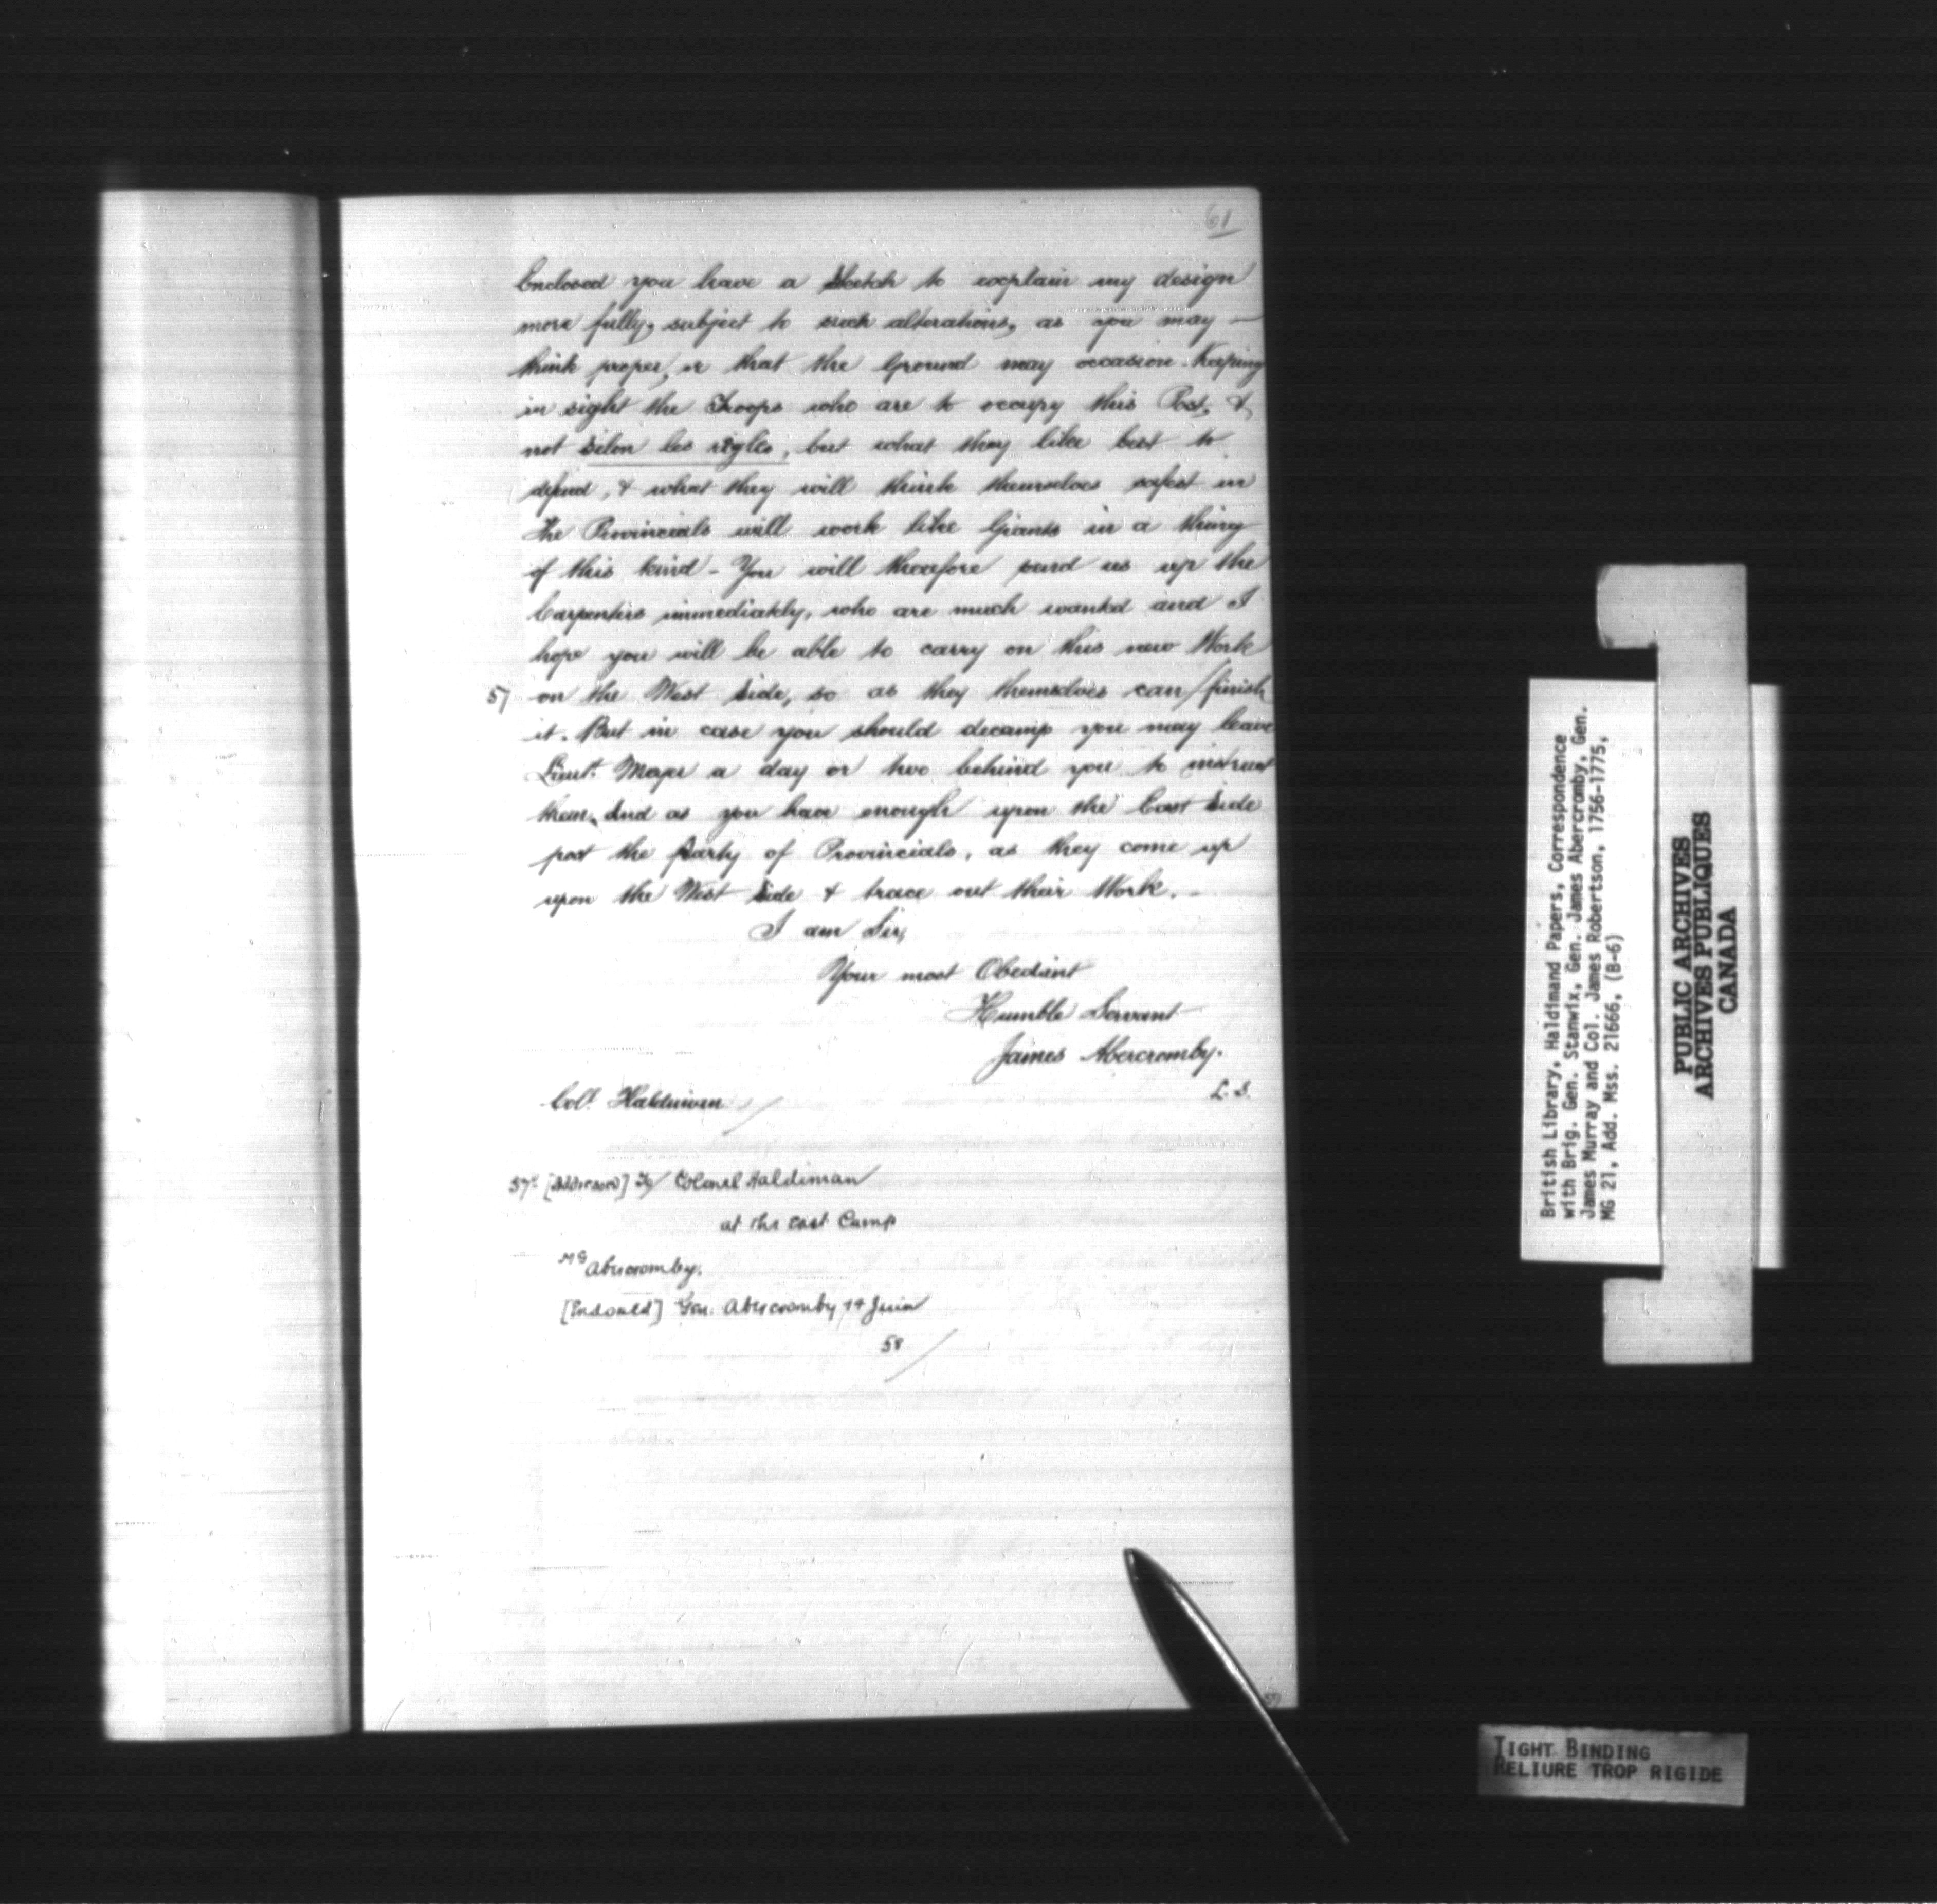 61
Enclosed you have a Sketch to explain my design
more fully, subject to such alterations, as you may —
think proper, or that the Ground may occasion. Keeping
in sight the Troops who are to occupy this Post, &
not selon les règles, but what they like best to
defend, & what they will think themselves safest in
The Provincials will work like Giants in a thing
of this kind - You will therefore send us up the
Carpenters immediately, who are much wanted and I
hope you will be able to carry on this new Work
57 on the West Side, so as they themselves can / finish
it. But in case you should decamp you may leave
Lieut. Mayer a day or two behind you to instruct
them. And as you have enough upon the East Side
post the party of Provincials, as they come up
upon the West Side & trace out their Work. -
I am Sir,
Your most Obedient
Humble Servant
James Abercromby.
L.S.
Coll. Haldiman /
57b [Addressed] To/ Colonel Haldiman
at the East Camp
Abercromby.
[Endorsed] Gen. Abercromby 14 Juin
58 /
British Library, Haldimand Papers, Correspondence
with Brig. Gen. Stanwix, Gen. James Abercromby, Gen.
James Murray and Col. James Robertson, 1756-1775,
MG 21, Add. Mss. 21666, (B-6)
PUBLIC ARCHIVES
ARCHIVES PUBLIQUES
CANADA
TIGHT BINDING
RELIURE TROP RIGIDE